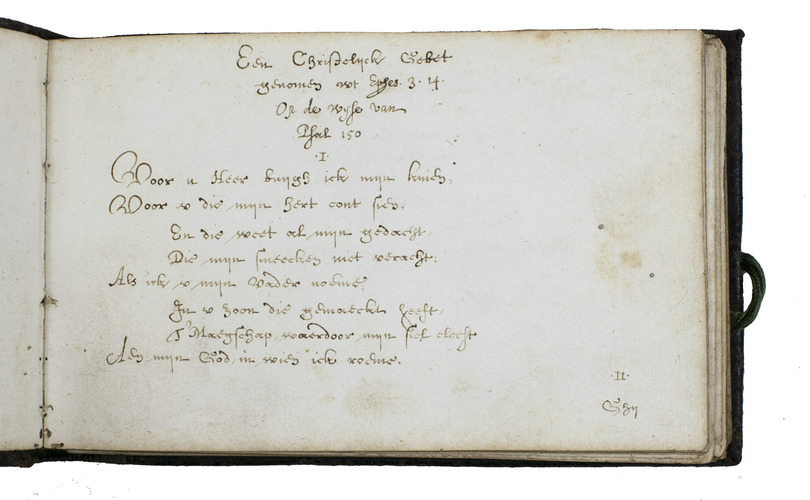 Een Christelijck Gebet
genomen wt Ephes. 3. 14.
Op de wijse van
Psal 150
.I.
Voor u Heer buijgh ick mijn knien,
Voor v die mijn hert cont sien,
En die weet al mijn gedacht,
Die mijn smeecken niet veracht;
Als ick v mijn Vader noeme,
In v zoon die gemaeckt heeft,
T'Maegschap, waerdoor mijn siel cleeft
Aen mijn God, in wien ick roeme.
.II.
Ghij